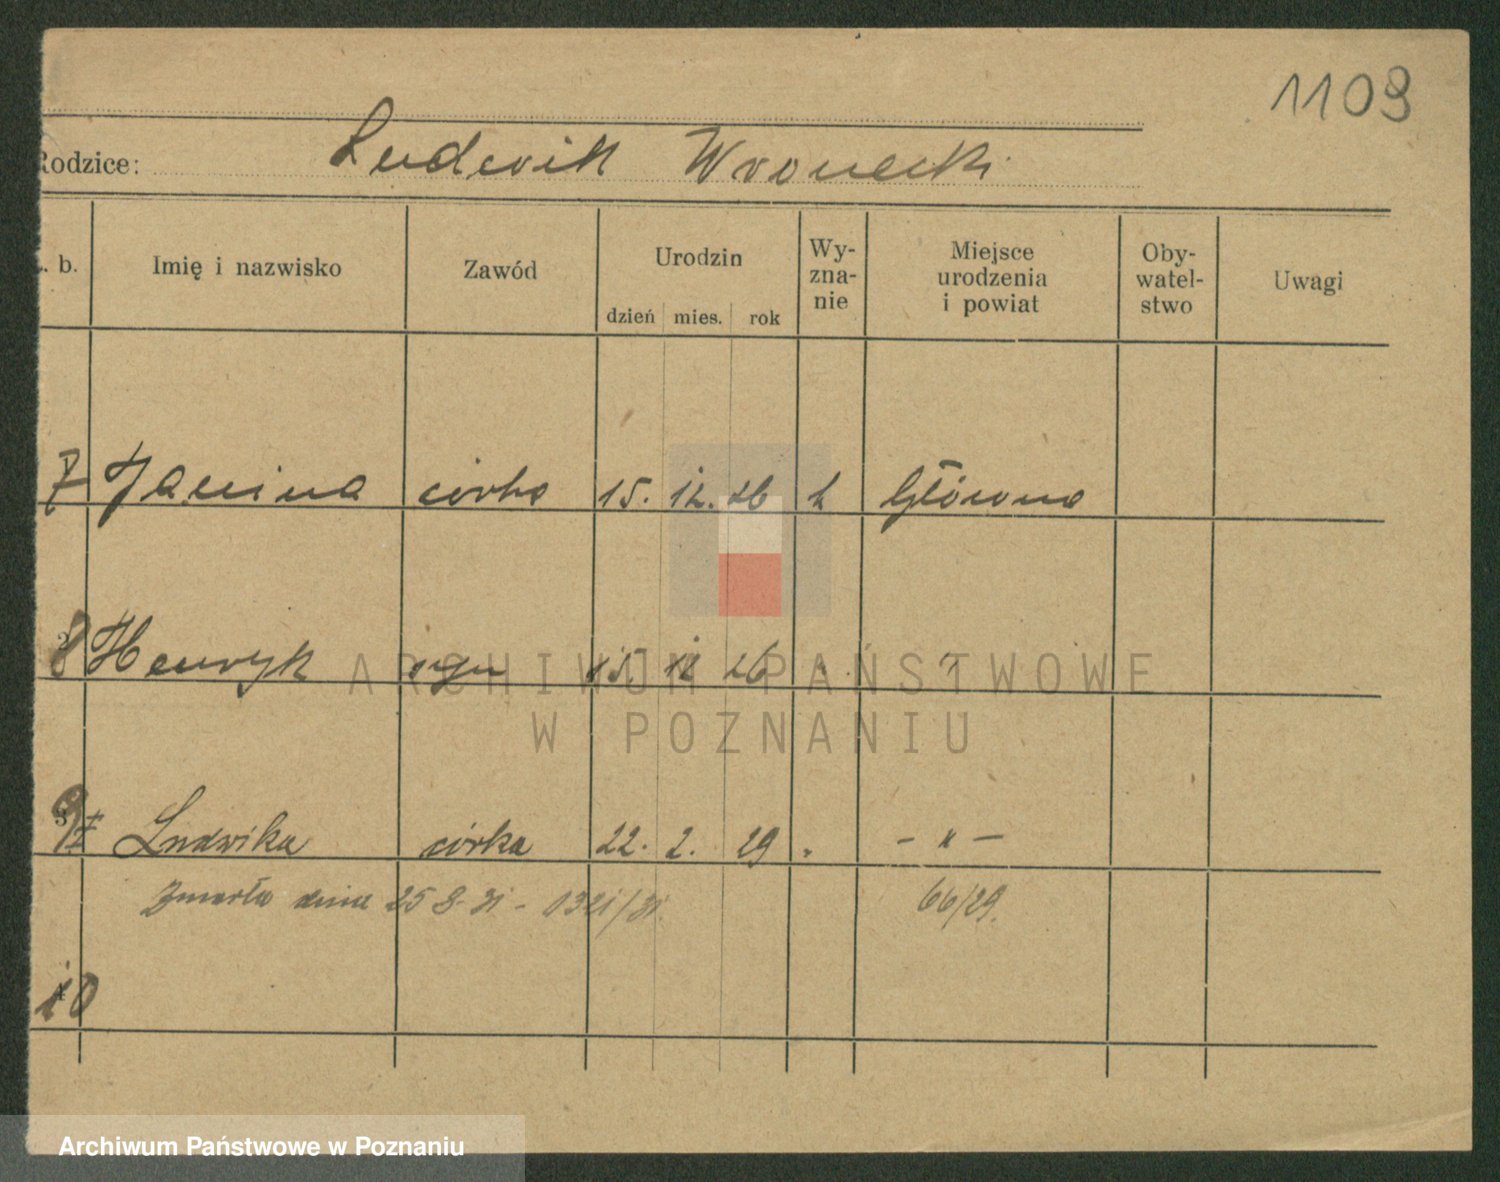 1109
Rodzice: Ludwik Wronecki
. b. Imię i nazwisko Zawód Urodzin dzień mies. rok Wy-zna-nie Miejsce urodzenia i powiat Oby-watel-stwo Uwagi
7 Janina córka 15. 12. 26 k Główno
8 Henryk syn 15. 12 26 " "
ARCHIWUM PAŃSTWOWE
W POZNANIU
9 Ludwika córka 22. 2. 29 " – " –
Zmarła dnia 25 8. 31 - 1321/31. 66/29.
10
Archiwum Państwowe w Poznaniu